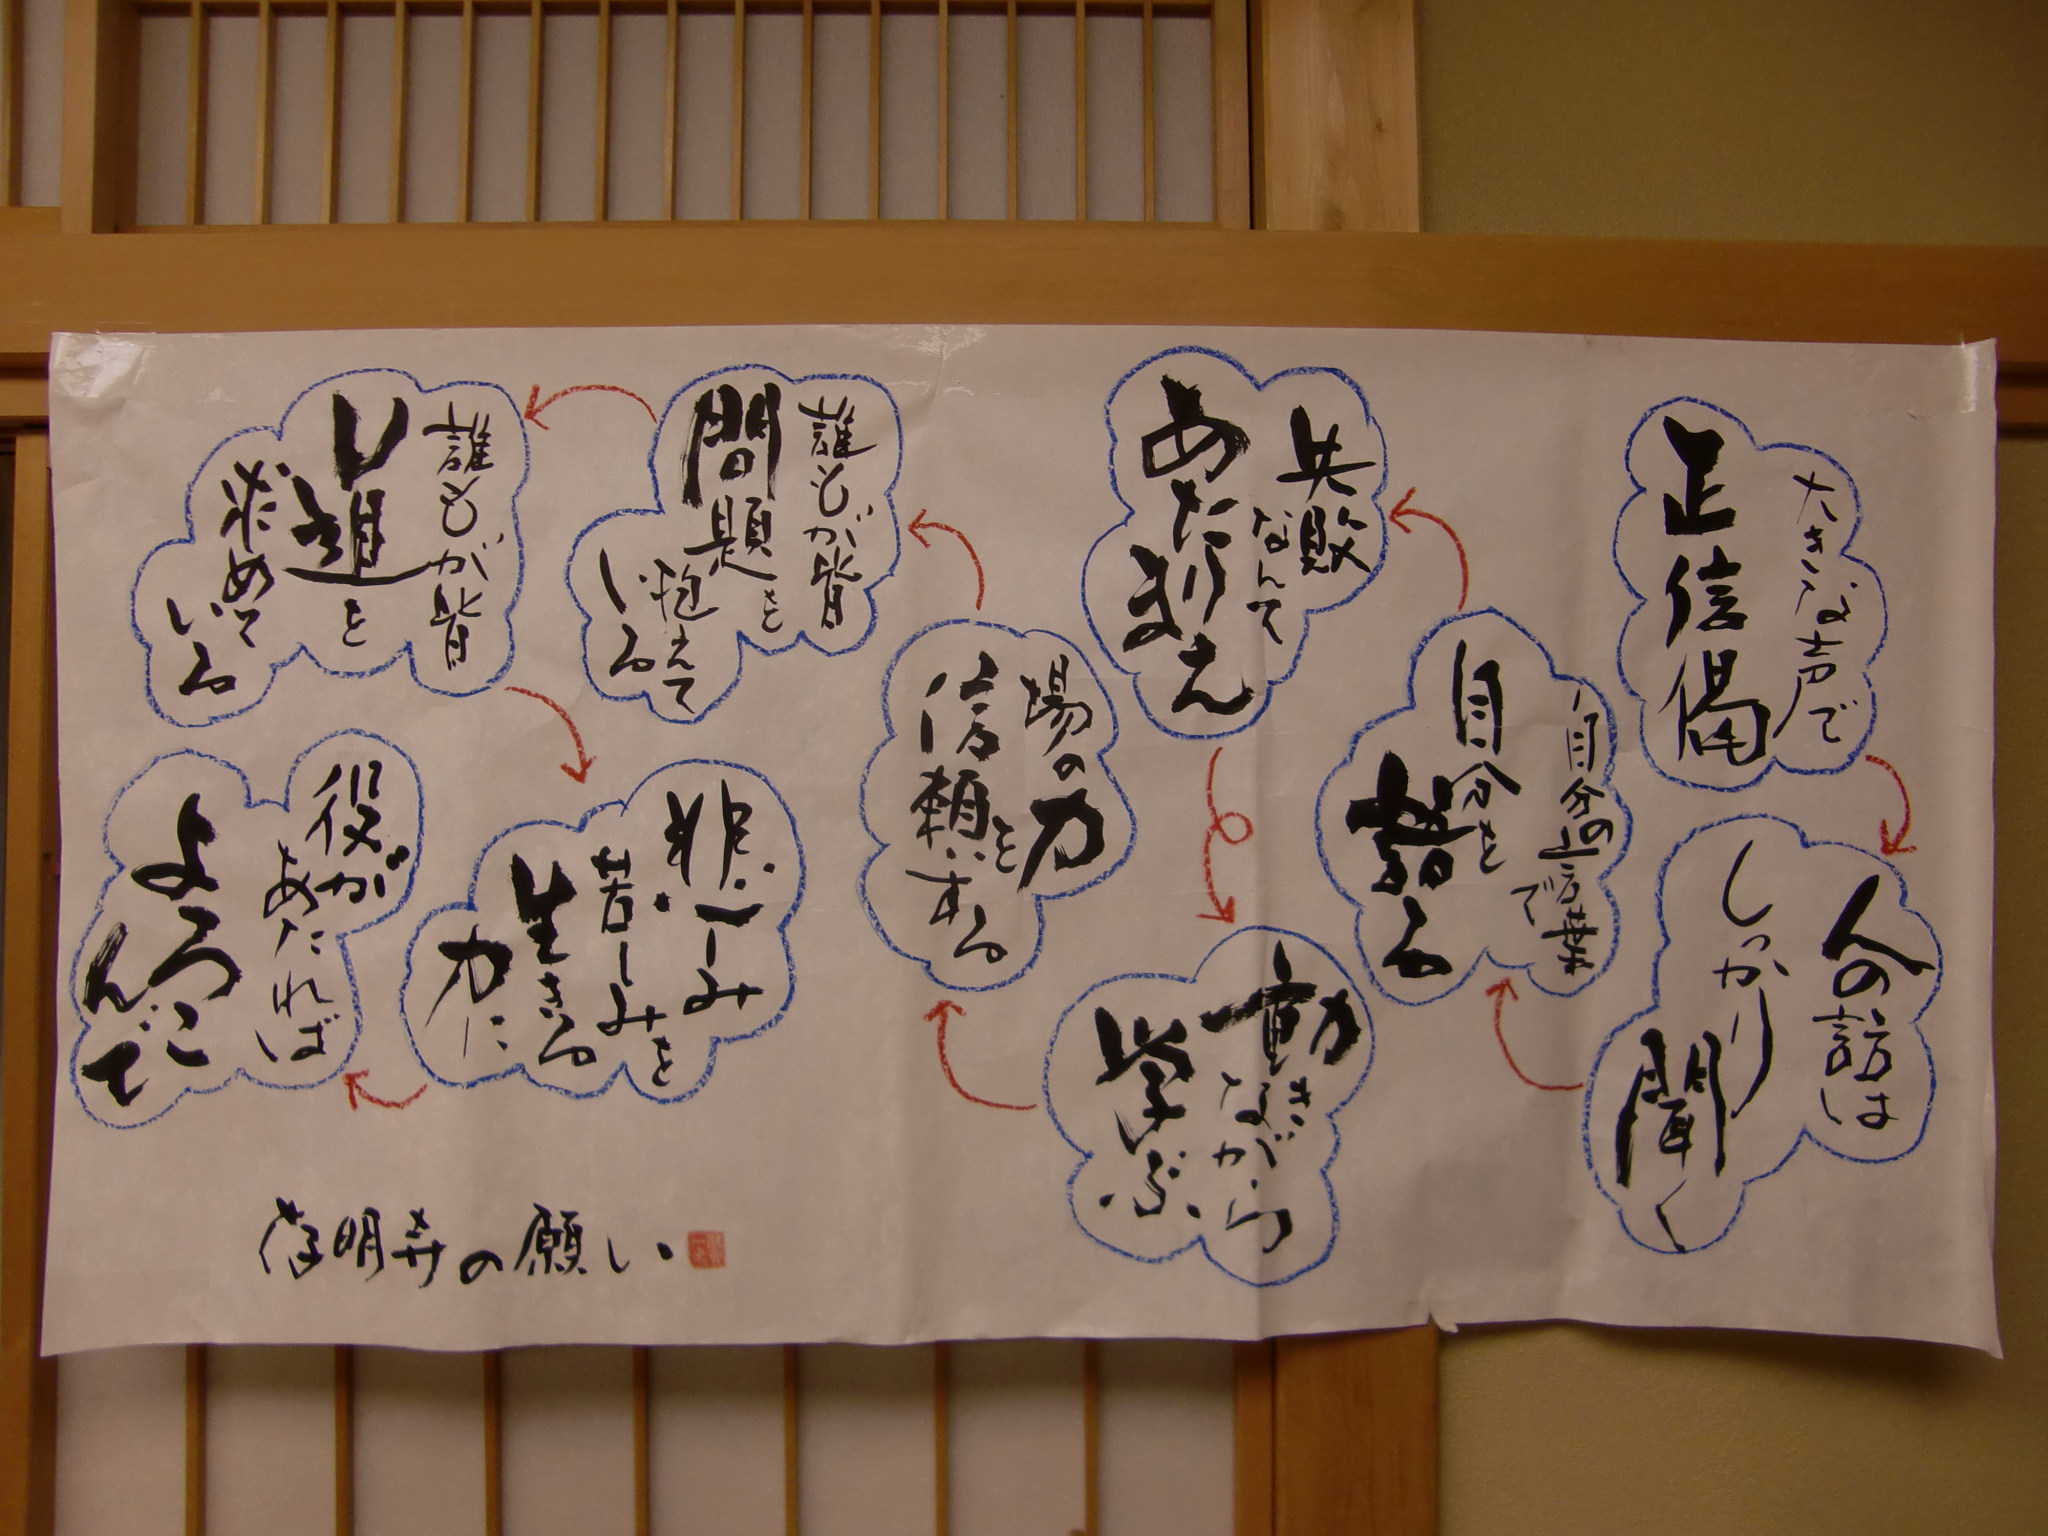 大きな声で
正信偈
人の話は
しっかり
聞く
自分の言葉で
自分を
語る
失敗
なんて
あたりまえ
動きながら
学ぶ
場の力を
信頼する
誰もが皆
問題を
抱えて
いる
誰もが皆
道を
求めて
いる
悲しみ
苦しみを
生きる
力に
役が
あたれば
よろこ
んで
存明寺の願い